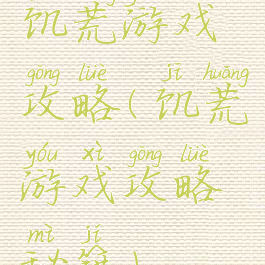 饥荒游戏
gōng lüè jī huāng
攻略(饥荒
yóu xì gōng lüè
游戏攻略
mì jí
秘籍)